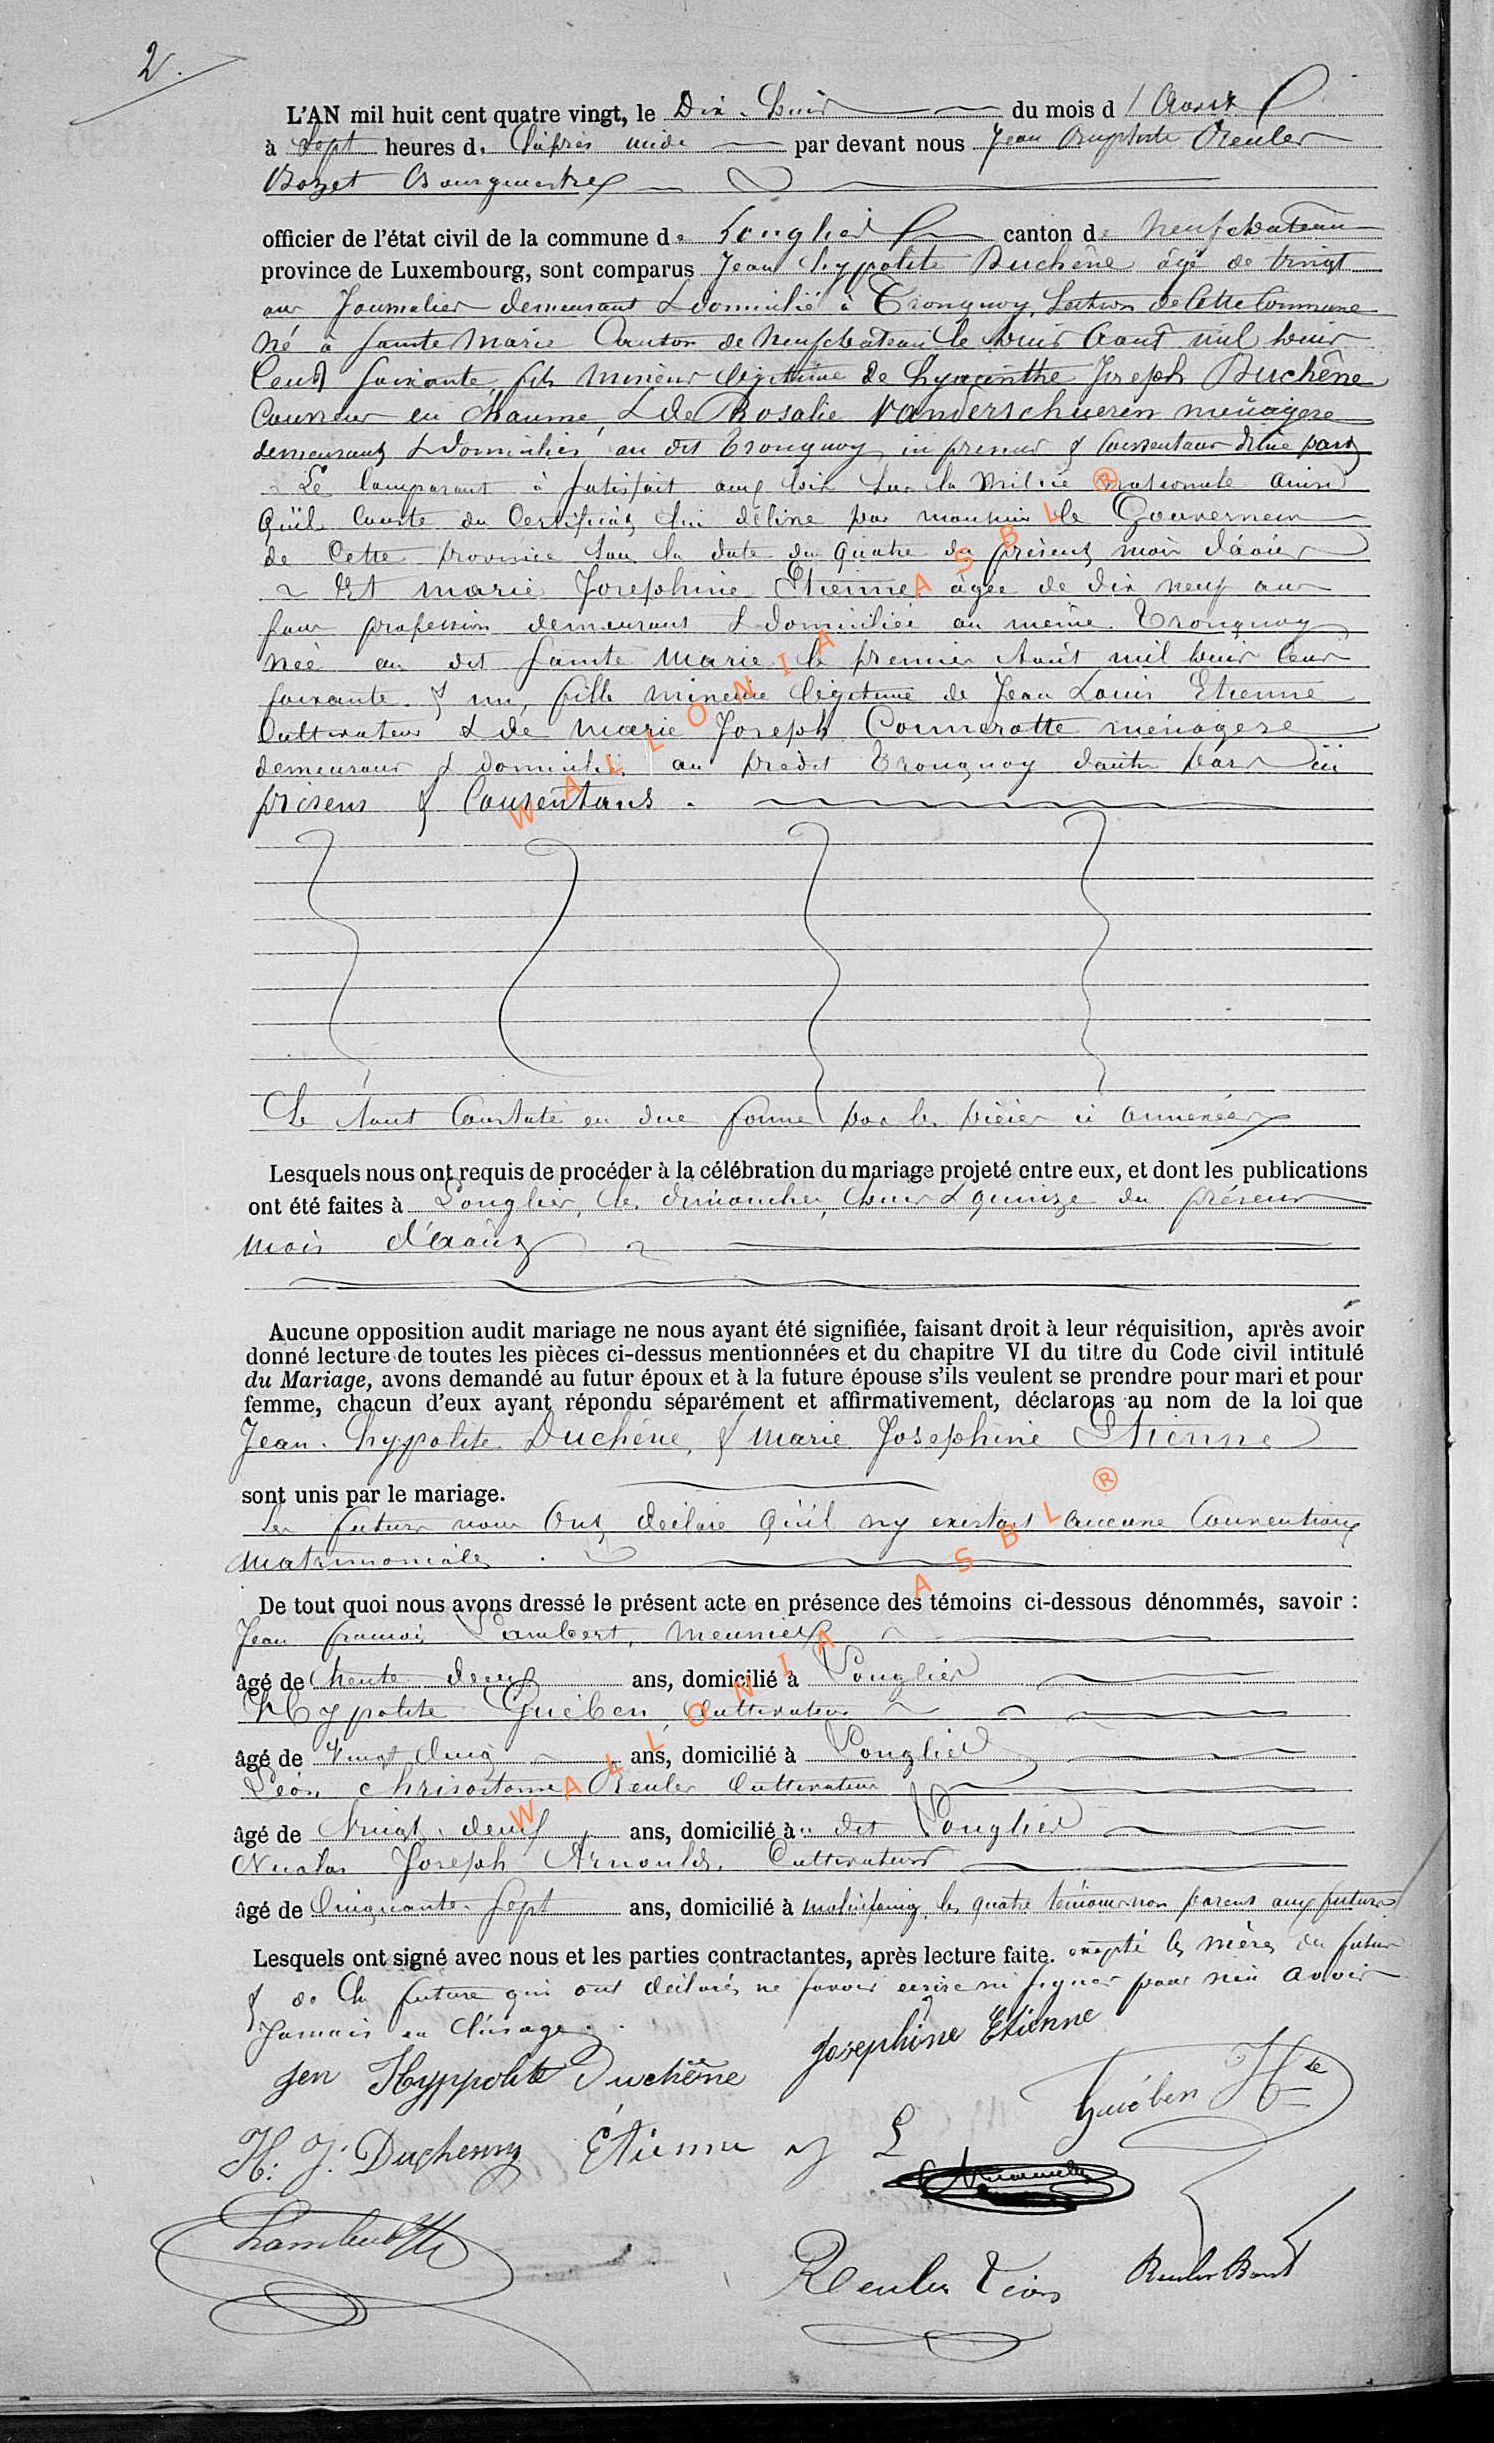 2.
L'AN mil huit cent quatre vingt, le Dix-huit du mois d'Aout
à Sept heures d. l'après midi par devant nous Jean Baptiste Reuler
Bozet Bourgmestre
officier de l'état civil de la commune de Longlier canton de Neufchateau
province de Luxembourg, sont comparus Jean hypolite Duchêne âgé de vingt
ans Journalier demeurant & domicilié à Tronquoy, Section de cette Commune
né à Sainte Marie Canton de Neufchateau le huit Aout mil huit
Cent soixante, fils mineur légitime de Hyacinthe Joseph Duchêne
Couvreur en chaume, & de Rosalie Vanderschueren ménagère
demeurant & domiciliés au dit Tronquoy ici present & consentant d'une part
Le Comparant à satisfait aux lois sur la Milice nationale ainsi
qu'il Conste du Certificat lui délivré par monsieur le Gouverneur
de cette province sous la date du quatre du présent mois d'aout
Et marie Josephine Etienne agée de dix neuf ans
sans profession demeurant & domiciliée au même Tronquoy
née au dit Sainte Marie le premier Août mil huit Cent
soixante & un, fille mineure légitime de Jean Louis Etienne
Cultivateur & de Marie Joseph Connerotte ménagere
demeurant & domiciliés au predit Tronquoy d'autre part ici
présens & Consentans.
Le tout Constaté en due forme par les pièces ci annexées
Lesquels nous ont requis de procéder à la célébration du mariage projeté entre eux, et dont les publications
ont été faites à Longlier, les dimanches, huit & quinze du présent
mois d'aout
Aucune opposition audit mariage ne nous ayant été signifiée, faisant droit à leur réquisition, après avoir
donné lecture de toutes les pièces ci-dessus mentionnées et du chapitre VI du titre du Code civil intitulé
du Mariage, avons demandé au futur époux et à la future épouse s'ils veulent se prendre pour mari et pour
femme, chacun d'eux ayant répondu séparément et affirmativement, déclarons au nom de la loi que
Jean hypolite Duchêne, & Marie Josephine Etienne
sont unis par le mariage.
Les futurs nous Ont déclaré qu'il ny existait aucune Conventions
matrimoniales.
De tout quoi nous avons dressé le présent acte en présence des témoins ci-dessous dénommés, savoir :
Jean françois Lambert, meunier
âgé de trente deux ans, domicilié à Longlier
Hypolite Guében Cultivateur
âgé de Vingt Cinq ans, domicilié à Longlier
Léon chrisostome Reuler Cultivateur
âgé de Vingt-deux ans, domicilié à dit Longlier
Nicolas Joseph Arnould, Cultivateur
âgé de Cinquante-Sept ans, domicilié à molinfaing les quatre témoins non parens aux futurs
Lesquels ont signé avec nous et les parties contractantes, après lecture faite. excepté les mères du futur
& de la future qui ont déclarés ne savoir ecrire ni signer pour n'en avoir
Jamais eu l'usage.
Josephine Etienne
Jen Hyppolite Duchêne
Guében Hte
H: J. Duchenne Étienne J L
Lambert
Reuler Léon
Reuler Bozet
WALLONIA ASBL ®
WALLONIA ASBL ®